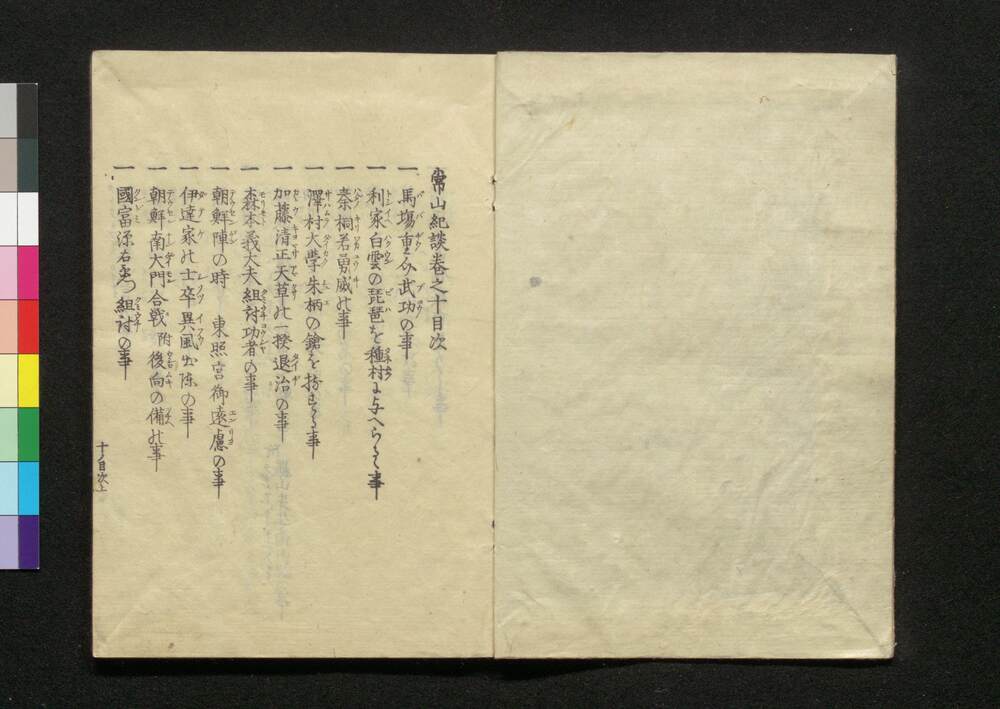 常山紀談巻之十目次
一 馬塲重介武功の事
一 利家白雲の琵琶を種村に与へらるゝ事
一 秦桐若勇威の事
一 澤村大學朱柄の鎗を持する事
一 加藤清正天草の一揆退治の事
一 森本義大夫組討功者の事
一 朝鮮陣の時 東照宮御遠慮の事
一 伊達家の士卒異風出陣の事
一 朝鮮南大門合戰附後向の備の事
一 國富源右衛門組討の事
十ノ目次上